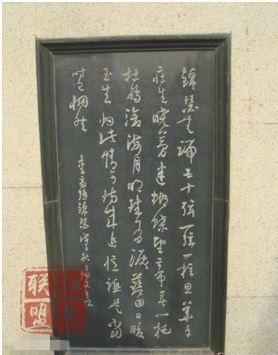 錦瑟無端五十弦一弦一柱思華年
莊生曉夢迷蝴蝶望帝春心托
杜鵑滄海月明珠有淚藍田日暖
玉生烟此情可待成追憶祗是當
時已惘然
李商隱錦瑟
联盟